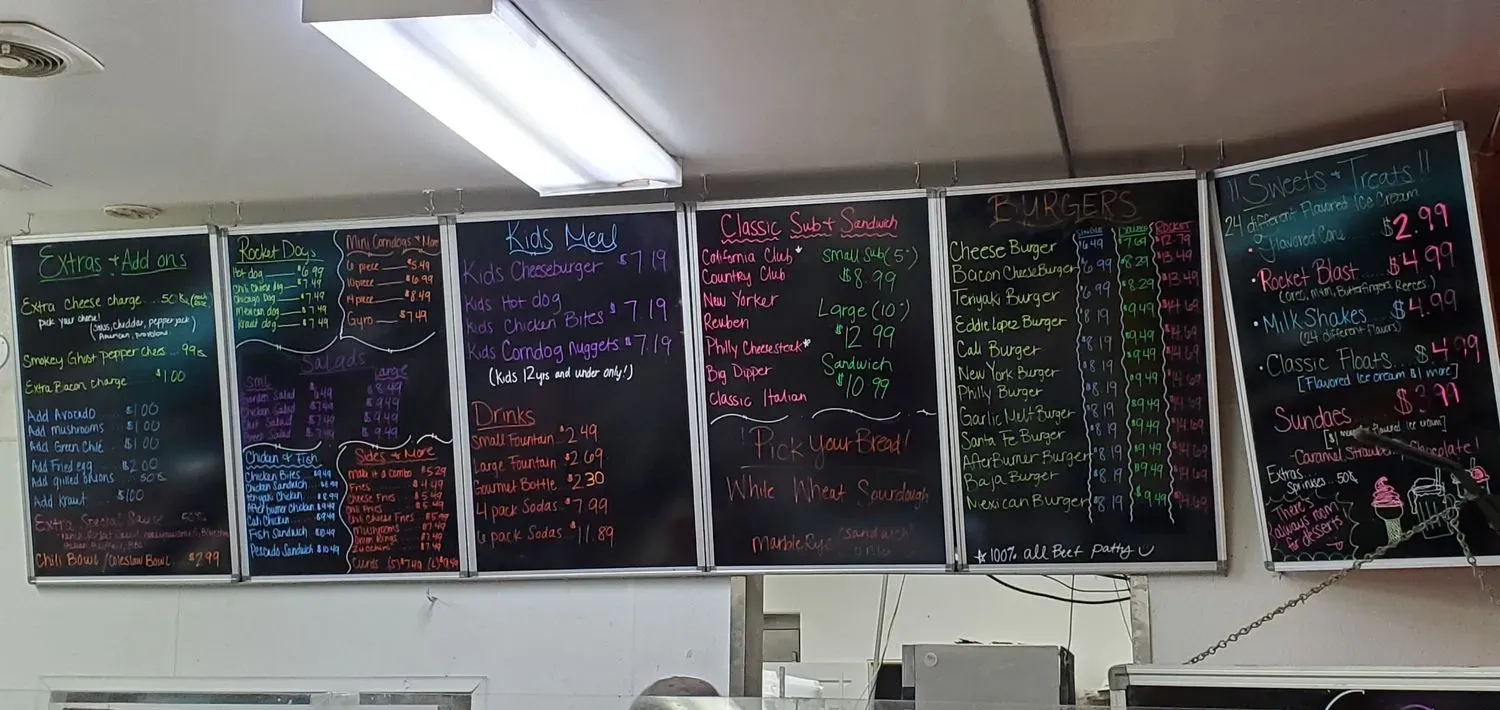 Extras + Add ons
Extra cheese charge ... 50¢ (each
pick your cheese!
(Swiss, cheddar, pepper jack)
American, provolone
Smokey Ghost pepper chees .. 99¢
Extra Bacon charge $1.00
Add Avocado ... $1.00
Add mushrooms $1.00
Add Green Chile $1.00
Add Fried egg ... $2.00
Add grilled onions ... 50¢
Add Kraut $1.00
Extra Special Sauce 50¢
Chili Bowl / Coleslaw Bowl ... $2.99
Rocket Dogs
Hot dog $6.99
Chili Cheese dog $7.49
Chicago dog $7.49
Mexican dog $7.49
Kraut dog $7.49
Mini Corndogs + More
6 piece $5.49
10 piece $6.99
14 piece $8.49
Gyro $7.49
Salads
Sml Large
Garden Salad $8.49
Chicken Salad $7.49 $9.49
Chef Salad $7.49 $9.49
Greek Salad $7.49 $9.49
Chicken + Fish
Chicken Bites
Chicken Sandwich
Teriyaki Chicken
Afterburner Chicken
Cali Chicken
Fish Sandwich
Pescado Sandwich $10.49
Sides + More
Make it a combo $5.29
Fries $4.49
Cheese Fries $5.49
Chili Fries $5.49
Chili Cheese Fries
Mushrooms $7.49
Onion Rings $7.49
Zucchini $7.49
Curds (S) $7.49 (L)
Kids Meal
Kids Cheeseburger $7.19
Kids Hot dog
Kids Chicken Bites $7.19
Kids Corndog nuggets $7.19
(Kids 12 yrs and under only!)
Drinks
Small Fountain $2.49
Large Fountain $2.69
Gourmet Bottle $2.30
4 pack Sodas $7.99
6 pack Sodas $11.89
Classic Sub + Sandwich
California Club*
Country Club
New Yorker
Reuben
Philly Cheesesteak*
Big Dipper
Classic Italian
Small Sub (5")
$8.99
Large (10")
$12.99
Sandwich
$10.99
Pick your Bread!
White Wheat Sourdough
Marble Rye "Sandwich"
only
BURGERS
SINGLE DOUBLE ROCKET
Cheese Burger $6.49 $7.69 $12.79
Bacon Cheese Burger $6.99 $8.29 $13.49
Teriyaki Burger $6.99 $8.29 $13.49
Eddie Lopez Burger $8.19 $9.49 $14.69
Cali Burger $8.19 $9.49 $14.69
New York Burger $8.19 $9.49 $14.69
Philly Burger $8.19 $9.49 $14.69
Garlic Melt Burger $8.19 $9.49 $14.69
Santa Fe Burger $8.19 $9.49 $14.69
AfterBurner Burger $8.19 $9.49 $14.69
Baja Burger $8.19 $9.49 $14.69
Mexican Burger $8.19 $9.49 $14.69
☆ 100% all Beef patty
!! Sweets + Treats !!
24 different Flavored Ice Cream
• Flavored Cone ... $2.99
• Rocket Blast ... $4.99
(Oreo, M+M, Butterfingers, Reeces)
• Milk Shakes .. $4.99
(24 different flavors)
• Classic Floats ... $4.99
[Flavored Ice cream $1 more]
Sundaes $3.99
[$1 more Flavored Ice cream]
- Caramel Strawberry Chocolate!
Extras
Sprinkles .. 50¢
There's
always room
for desserts